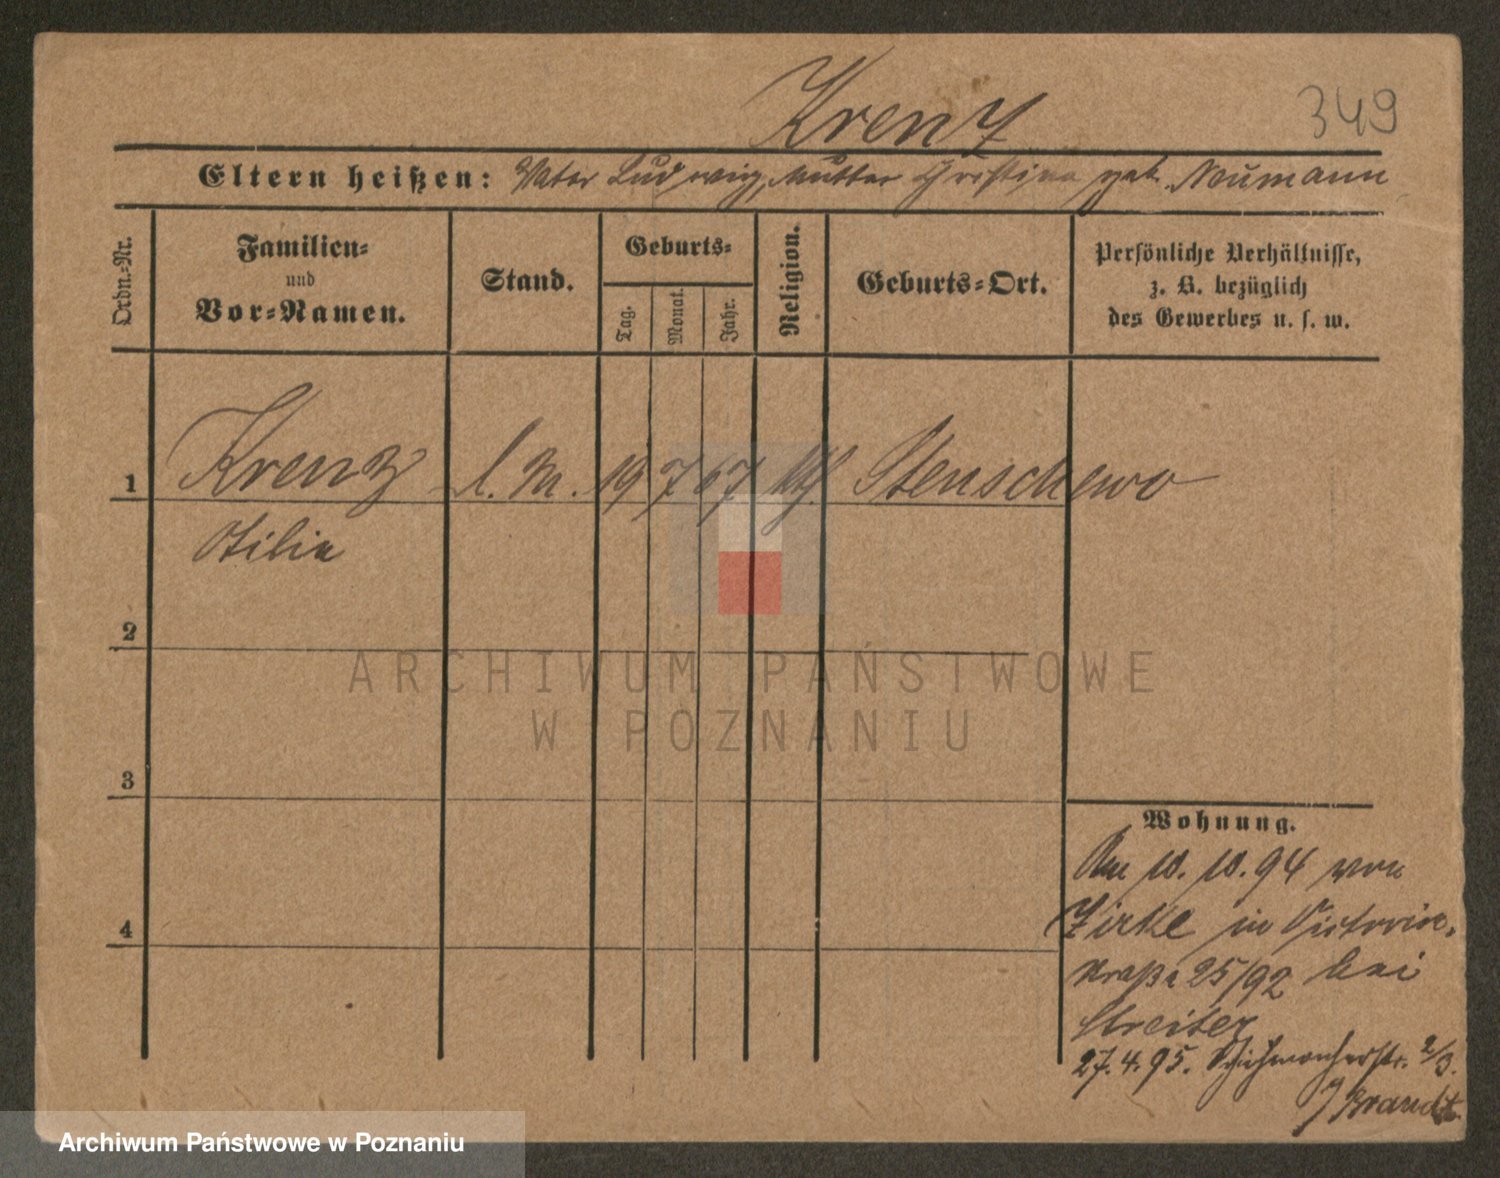 Krenz
349
Eltern heißen: Vater Ludwig, Mutter Christina geb. Neumann
Ordn.-Nr.
Familien- und Vor-Namen.
Stand.
Geburts-
Tag.
Monat.
Jahr.
Religion.
Geburts-Ort.
Persönliche Verhältnisse,
z. B. bezüglich
des Gewerbes u. s. w.
1 Krenz l. M. 19 7 67 kth. Stenschewo
Otilie
2
3
4
Wohnung.
Am 10. 10. 94 von
Zirke in Victoria-
straße 25/92 bei
Streiter
27. 4. 95. 2/3.
Brandt
ARCHIWUM PAŃSTWOWE
W POZNANIU
Archiwum Państwowe w Poznaniu